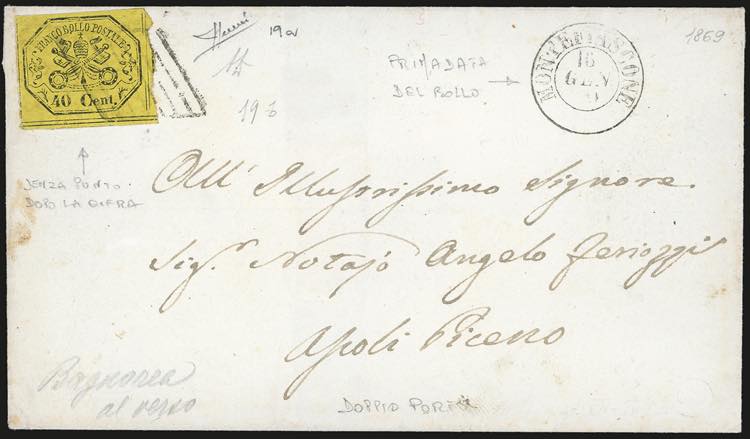 FRANCO BOLLO POSTALE
40 Cent.
19a
1869
19 b
PRIMA DATA
DEL BOLLO
MONTEFIASCONE
16
GEN
SENZA PUNTO
DOPO LA CIFRA
All' Illustrissimo Signore
Sig.r Notajo Angelo
Ascoli Piceno
Bagnorea
al verso
DOPPIO PORTO